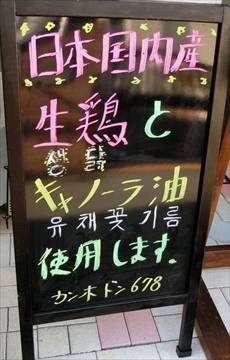 日本国内産
生鶏と
생닭
キャノーラ油
유채꽃기름
使用します。
カンホドン678